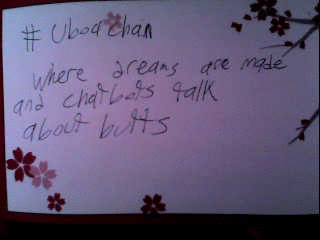 # Uboachan
where dreams are made
and chatbots talk
about butts